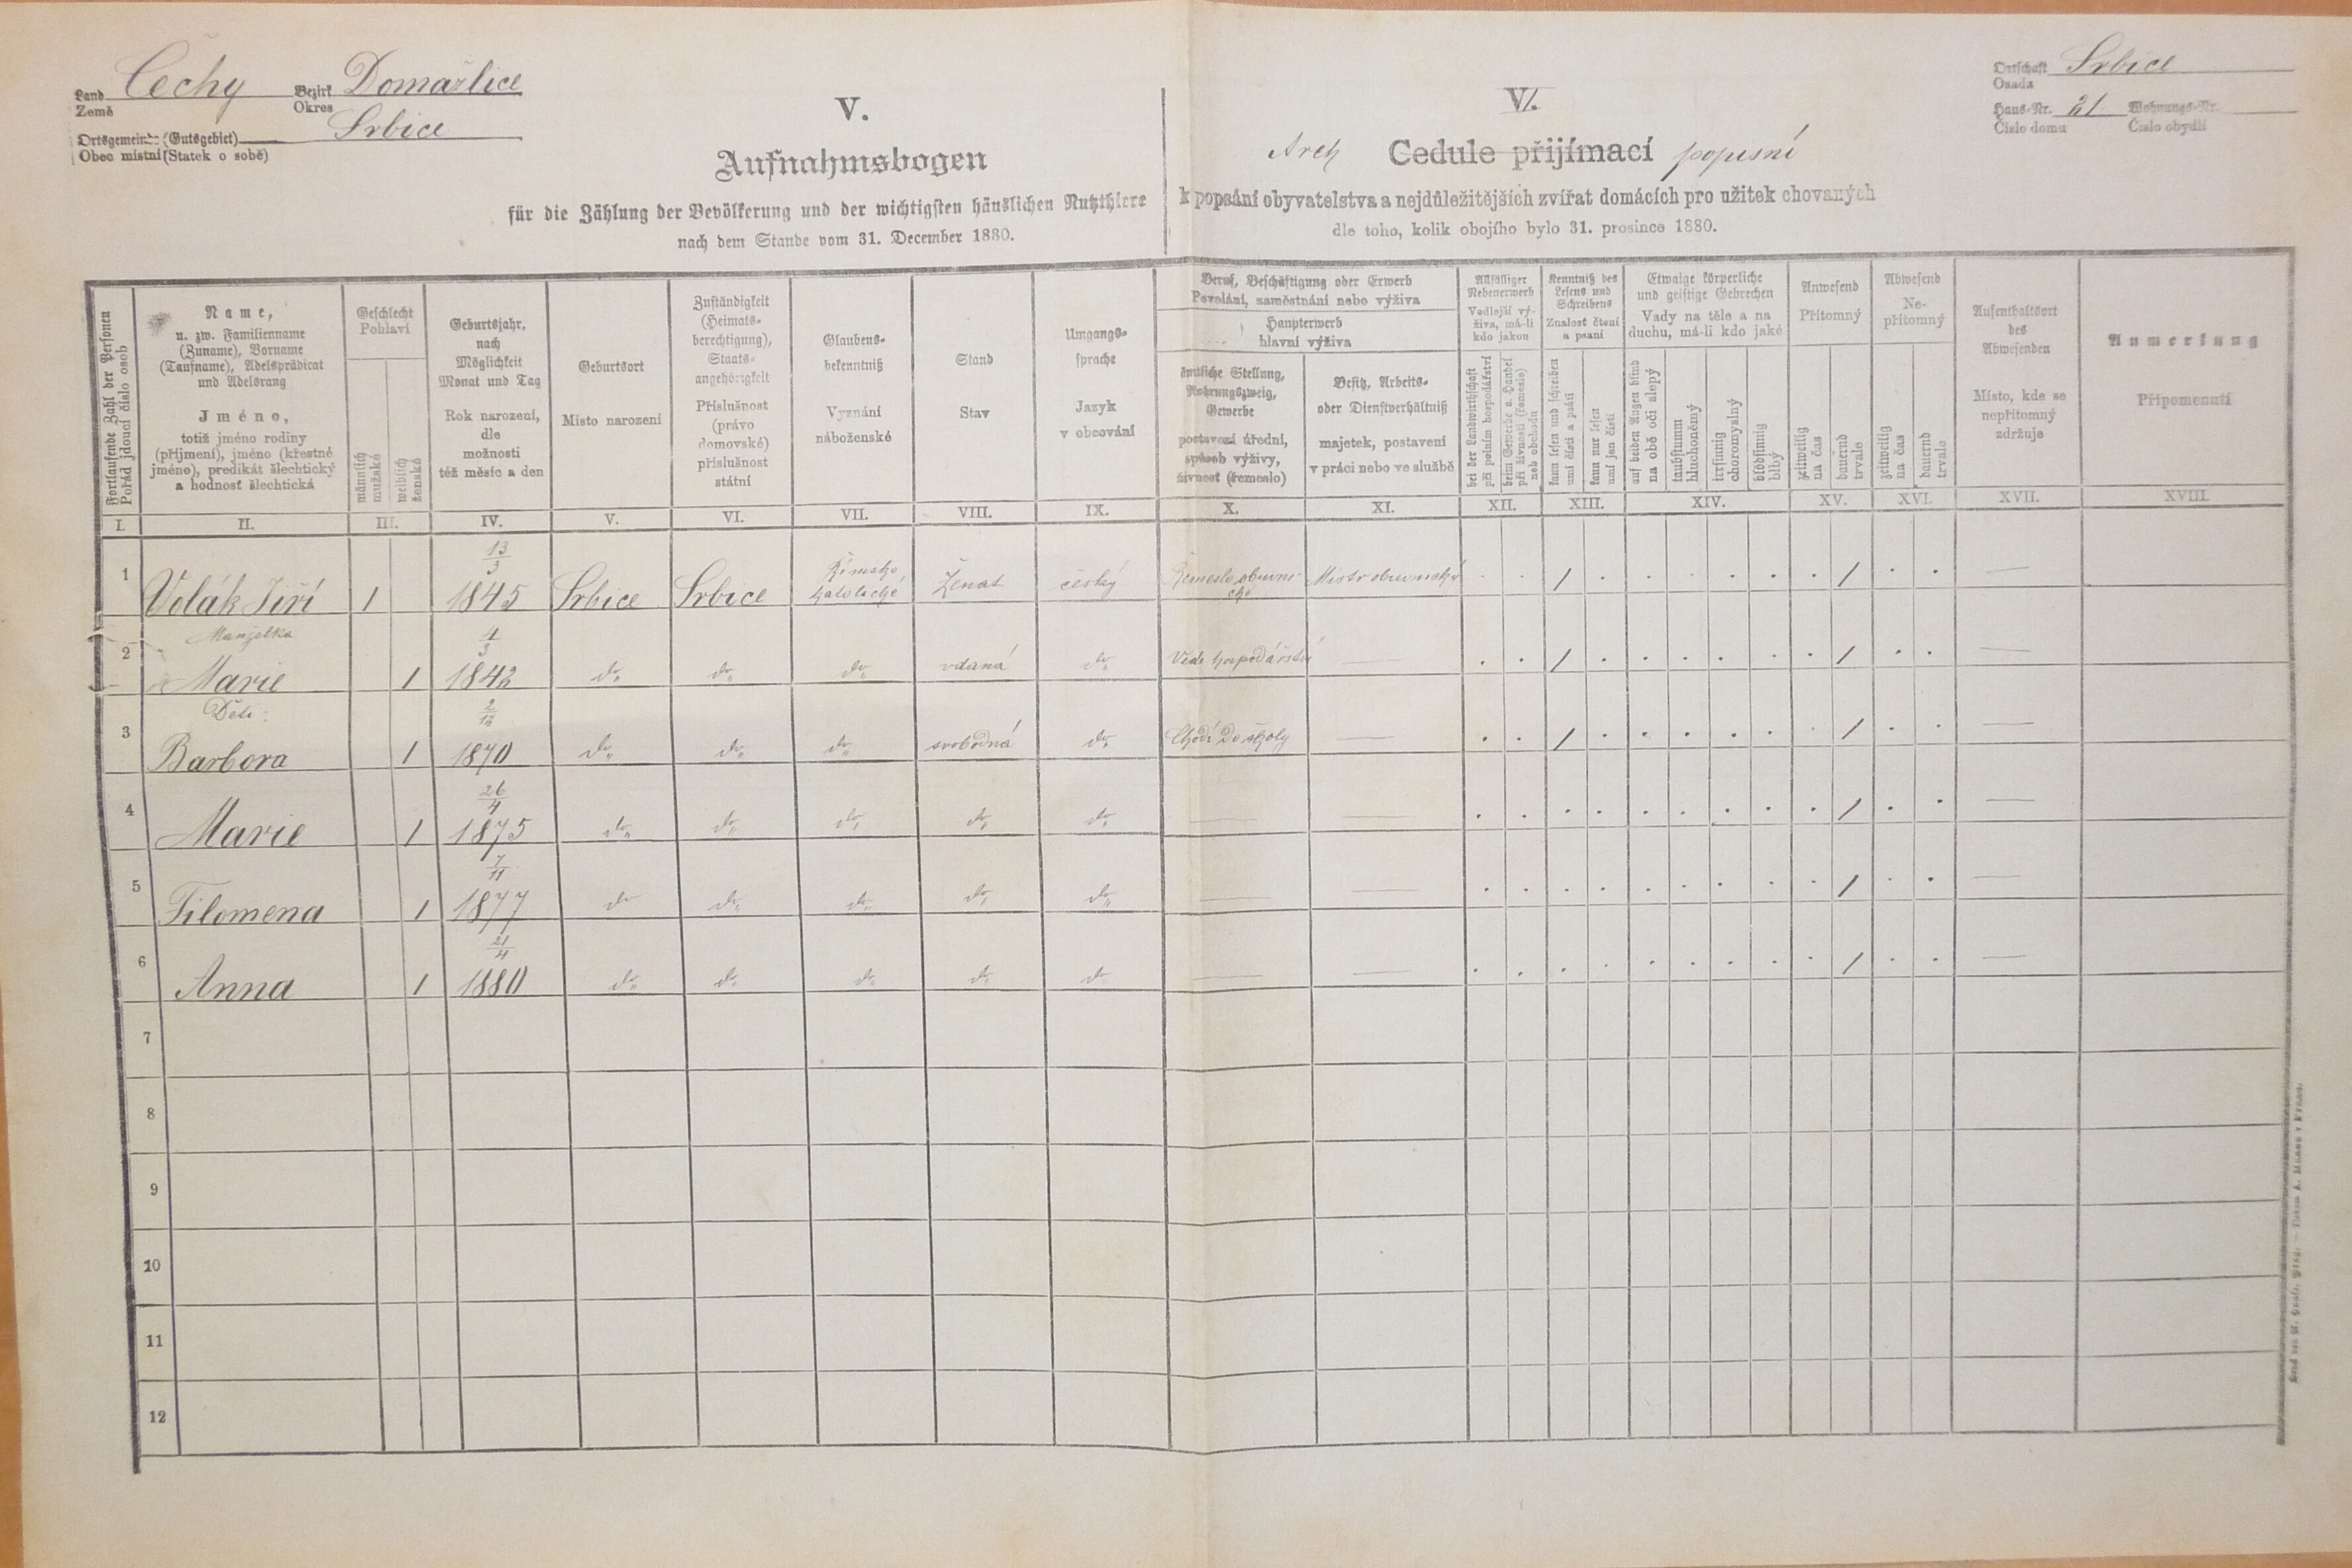 Land Země Čechy Bezirk Okres Domažlice
Ortsgemeinde (Gutsgebiet) Obec místní (Statek o sobě) Srbice
V.
Aufnahmsbogen
für die Zählung der Bevölkerung und der wichtigsten häuslichen Nutzthiere
nach dem Stande vom 31. December 1880.
V.
Arch Cedule přijímací popisní
k popsání obyvatelstva a nejdůležitějších zvířat domácích pro užitek chovaných
dle toho, kolik obojího bylo 31. prosince 1880.
Ortschaft Osada Srbice
Haus-Nr. Číslo domu 21 Wohnungs-Nr. Číslo obydlí
Fortlaufende Zahl der Personen
Pořád jdoucí číslo osob
Name,
u. zw. Familienname
(Zuname), Vorname
(Taufname), Adelsprädicat
und Adelsrang
Jméno,
totiž jméno rodiny
(příjmení), jméno (křestné
jméno), predikát šlechtický
a hodnost šlechtická
Geschlecht
Pohlaví
männlich
mužské
weiblich
ženské
Geburtsjahr,
nach
Möglichkeit
Monat und Tag
Rok narození,
dle
možnosti
též měsíc a den
Geburtsort
Místo narození
Zuständigkeit
(Heimats-
berechtigung),
Staats-
angehörigkeit
Příslušnost
(právo
domovské)
příslušnost
státní
Glaubens-
bekenntniß
Vyznání
náboženské
Stand
Stav
Umgangs-
sprache
Jazyk
v obcování
Beruf, Beschäftigung oder Erwerb
Povolání, zaměstnání nebo výživa
Haupterwerb
hlavní výživa
ämtliche Stellung,
Nahrungszweig,
Gewerbe
postavení úřední,
spůsob výživy,
živnost (řemeslo)
Besitz, Arbeits-
oder Dienstverhältniß
majetek, postavení
v práci nebo ve službě
Allfälliger
Nebenerwerb
Vedlejší vý-
živa, má-li
kdo jakou
bei der Landwirthschaft
při polním hospodářství
beim Gewerbe o. Handel
při živnosti (řemesle)
neb obchodu
Kenntniß des
Lesens und
Schreibens
Znalost čtení
a psaní
kann lesen und schreiben
umí čísti a psáti
kann nur lesen
umí jen čísti
Etwaige körperliche
und geistige Gebrechen
Vady na těle a na
duchu, má-li kdo jaké
auf beiden Augen blind
na obě oči slepý
taubstumm
hluchoněmý
irrsinnig
choromyslný
blödsinnig
blbý
Anwesend
Přítomný
zeitweilig
na čas
dauernd
trvale
Abwesend
Ne-
přítomný
zeitweilig
na čas
dauernd
trvale
Aufenthaltsort
des
Abwesenden
Místo, kde se
nepřítomný
zdržuje
Anmerkung
Připomenutí
I. II. III. IV. V. VI. VII. VIII. IX. X. XI. XII. XIII. XIV. XV. XVI. XVII. XVIII.
1 Volák Jiří 1 13/3 1845 Srbice Srbice Římsko katolické Ženat český Řemeslo obuvnické Mistr obuvnický . . / . . . . . . / . . —
Manželka
2 Marie 1 4/3 1842 do do do vdaná do Vede hospodářství — . . / . . . . . . / . . —
Děti:
3 Barbora 1 2/12 1870 do do do svobodná do Chodí do školy — . . / . . . . . . / . . —
4 Marie 1 26/4 1875 do do do do do — — . . . . . . . . . / . . —
5 Filomena 1 7/11 1877 do do do do do — — . . . . . . . . . / . . —
6 Anna 1 21/4 1880 do do do do do — — . . . . . . . . . / . . —
7
8
9
10
11
12